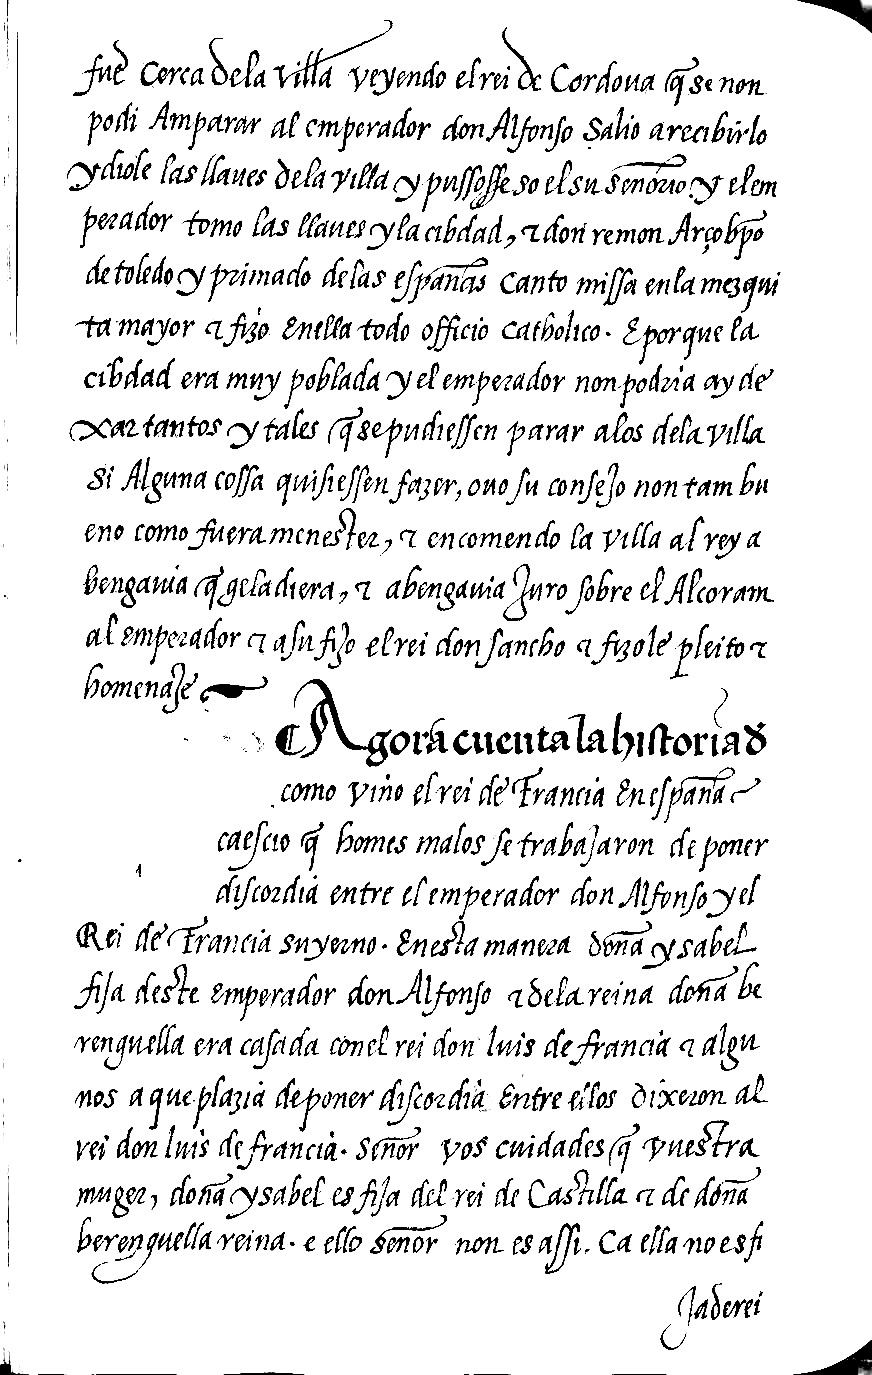 fue cerca dela villa veyendo el rei de Cordoua q̃ se non
podi Amparar al emperador don Alfonso Salio a recibirlo
y diole las llaues dela villa y pussosse so el su señorio y el em
perador tomo las llaues y la cibdad, τ don remon Arçobp̃o
de toledo y primado delas españas canto missa enla mezqui
ta mayor τ fizo Enella todo officio catholico. E porque la
cibdad era muy poblada y el emperador non podria ay de
xar tantos y tales q̃ se pudiessen parar alos dela villa
Si Alguna cossa quisiessen fazer, ouo su consejo non tam bu
eno como fuera menester, τ encomendo la villa al rey a
bengauia q̃ gela diera, τ abengauia Juro sobre el Alcoram
al Emperador τ a su fijo el rei don sancho τ fizole pleito τ
homenaje
Agora cuenta la historia d
como vino el rei de Francia En españa
caescio q̃ homes malos se trabajaron de poner
1
discordia entre el emperador don Alfonso y el
Rei de Francia su yerno. En esta manera doña ysabel
fija deste Emperador don Alfonso τ dela reina doña be
renguella era casada con el rei don luis de francia τ algu
nos a que plazia de poner discordia Entre ellos dixeron al
rei don luis de francia. señor vos cuidades q̃ vuestra
muger, doña ysabel es fija del rei de Castilla τ de doña
berenguella reina. e ello señor non es assi. Ca ella no es fi
Ja de rei